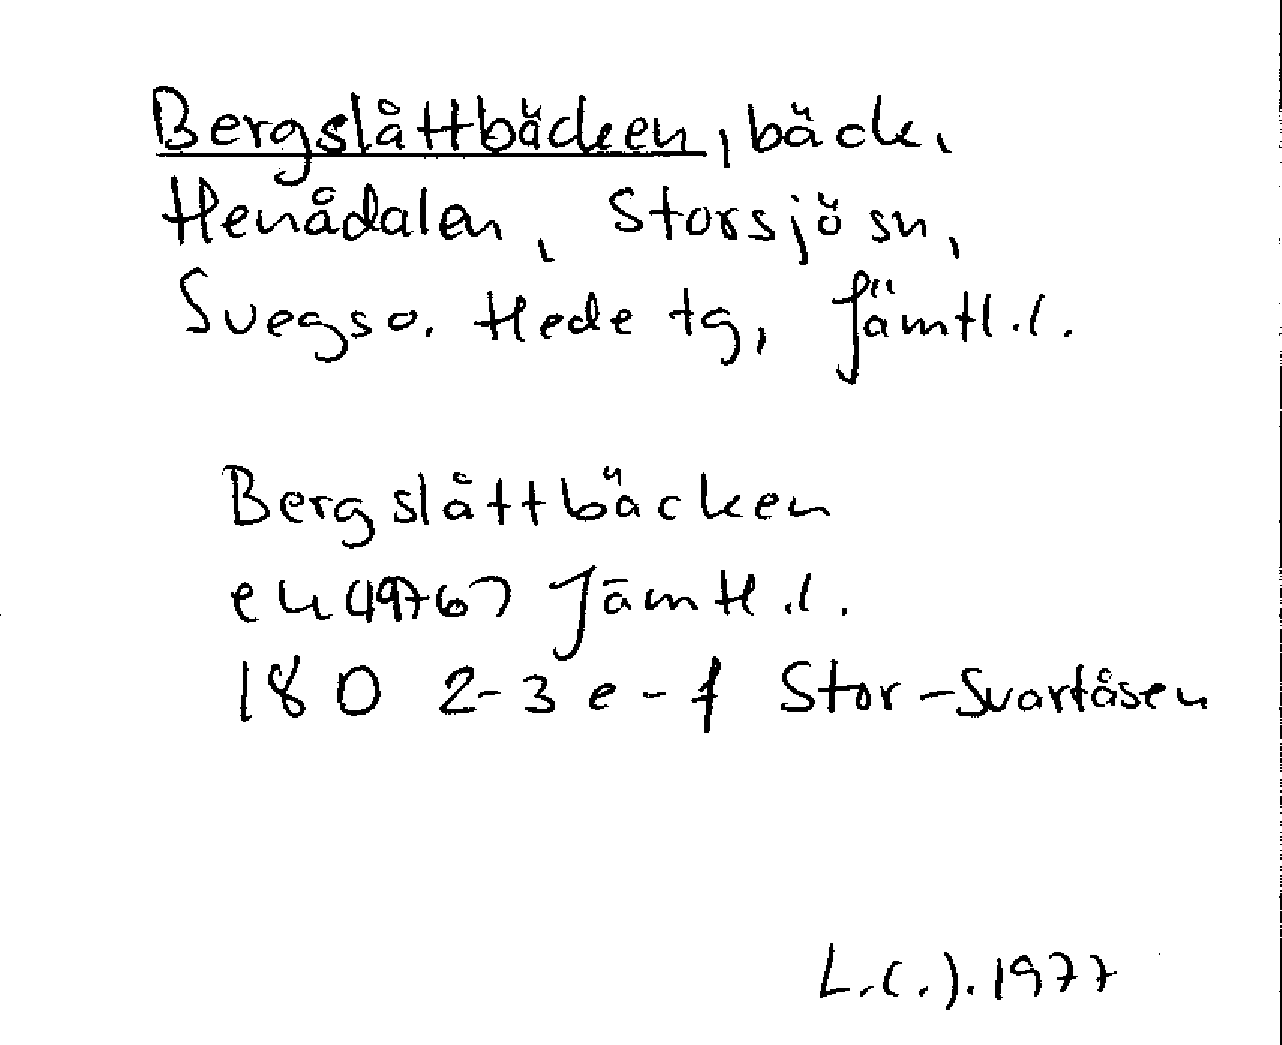 Bergslåttbäcken, bäck,
Henådalen, Storsjö sn,
Svegs o. Hede tg, Jämtl.l.
Bergslåttbäcken
ek 49767 Jämtl.l.
180 2-3 e-f Stor-Svartåsen
L.C.J. 1977